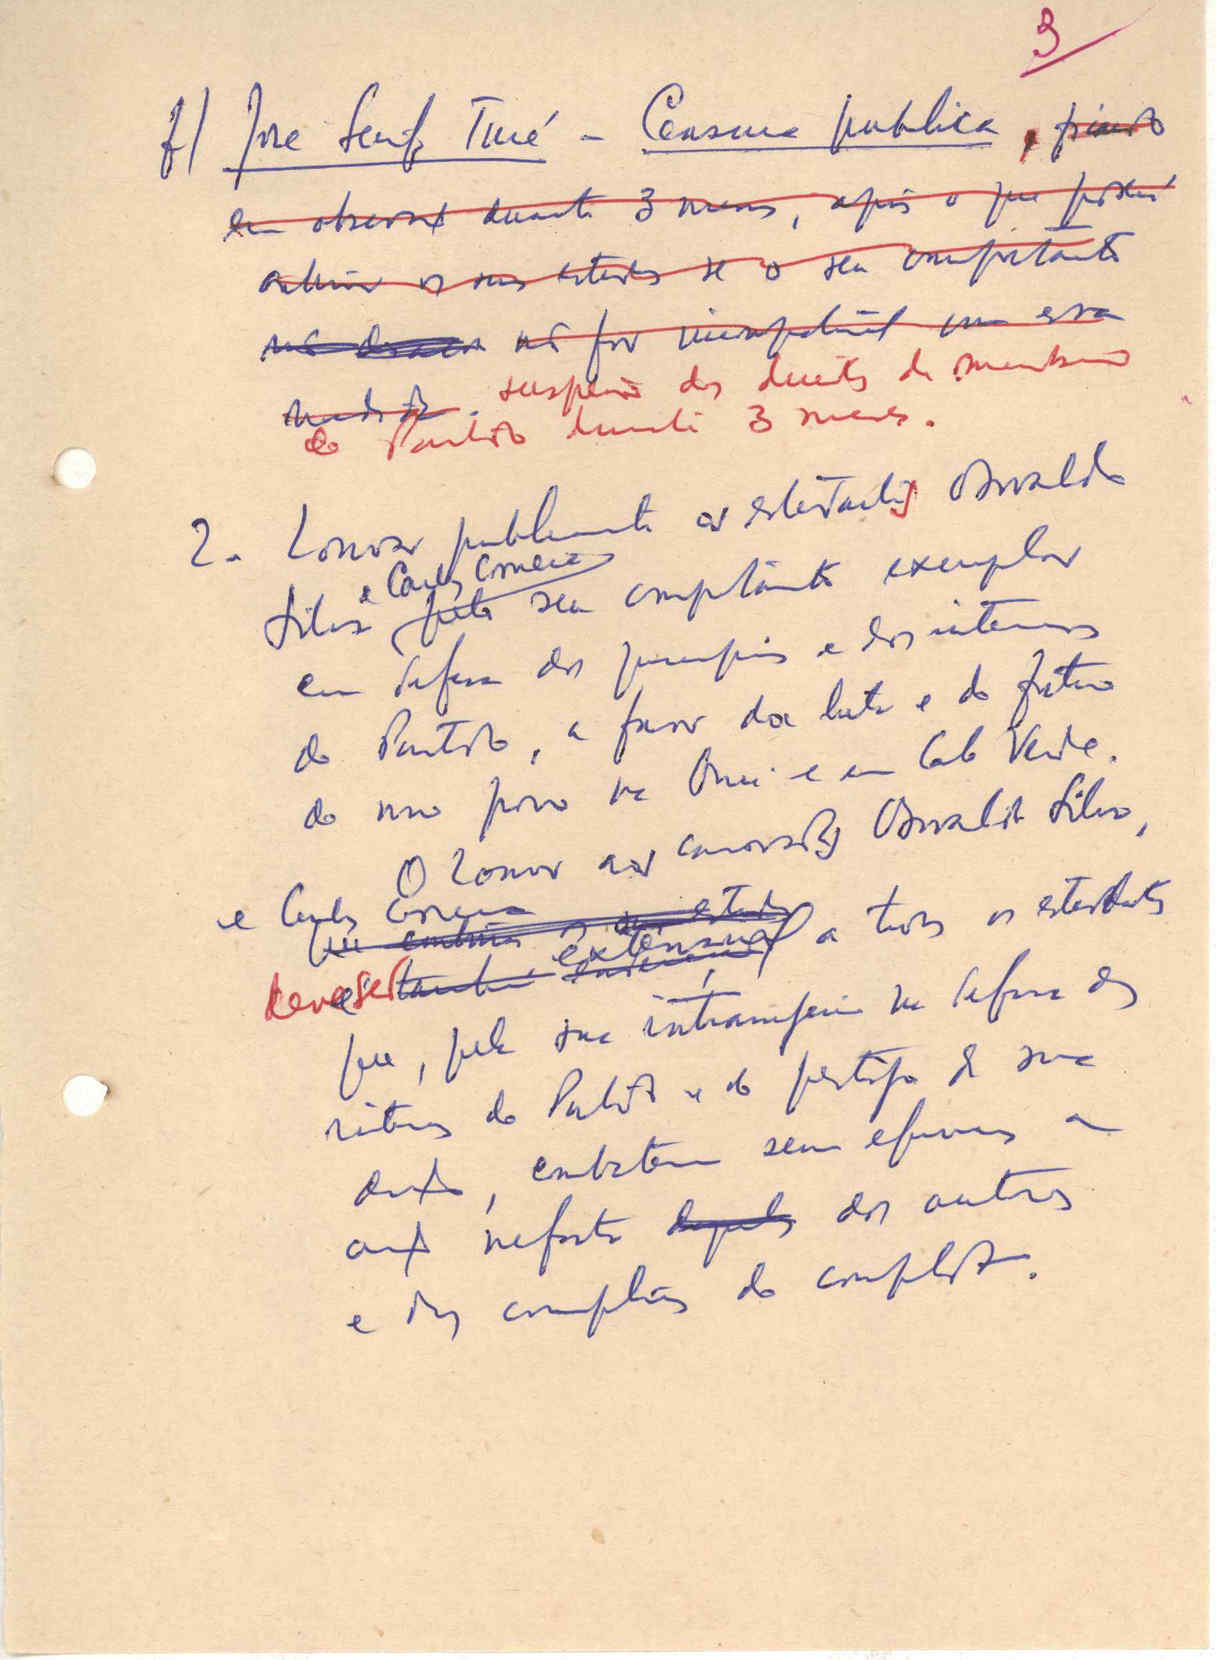 3
f) José Turé - Censura publica, ficando
em observaç durante 3 meses, após o que poderá
os seus estudos se o seu comportamento
não for incompatível com essa
medida. suspensão dos direitos de membro
do Partido durante 3 meses.
2. Louvar publicamente os estudantes Osvaldo
Silva e Carlos Correia pelo seu comportamento exemplar
em defesa dos principios e dos interesses
do Partido, a favor da luta e do futuro
do nosso povo na Guiné e em Cabo Verde.
O louvor aos camaradas Osvaldo Silva,
e Carlos Correia
que os seus estudos
deve ser também extensivo a todos os estudantes
que, pela sua intransigência na defesa dos
interesses do Partido e do prestígio de sua
direcção, combateram sem a
acção nefasta dos autores
e dos cumplices do complot.